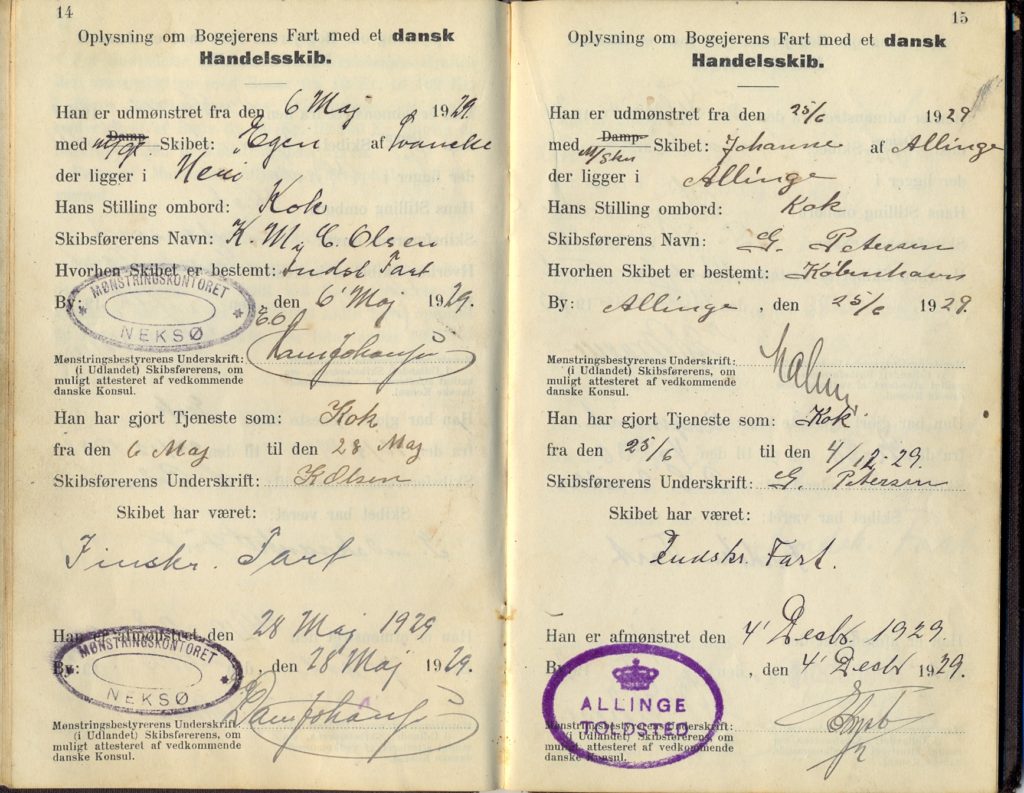 14
Oplysning om Bogejerens Fart med et dansk
Handelsskib.
Han er udmønstret fra den 6 Maj 1929.
med Damp- Skibet: Egen af Svaneke
der ligger i Nexø
Hans Stilling ombord: Kok
Skibsførerens Navn: K. M. C. Olsen
Hvorhen Skibet er bestemt: Indst Fart
By: , den 6' Maj 1929.
MØNSTRINGSKONTORET
NEKSØ
Mønstringsbestyrerens Underskrift:
(i Udlandet) Skibsførerens, om
muligt attesteret af vedkommende
danske Konsul.
Han har gjort Tjeneste som: Kok
fra den 6 Maj til den 28 Maj
Skibsførerens Underskrift: K Olsen
Skibet har været:
Fart
Han er afmønstret den 28 Maj 1929
By: , den 28 Maj 1929.
MØNSTRINGSKONTORET
NEKSØ
Mønstringsbestyrerens Underskrift:
(i Udlandet) Skibsførerens, om
muligt attesteret af vedkommende
danske Konsul.
15
Oplysning om Bogejerens Fart med et dansk
Handelsskib.
Han er udmønstret fra den 25/6 1929
med Damp- M/skn Skibet: Johanne af Allinge
der ligger i Allinge
Hans Stilling ombord: Kok
Skibsførerens Navn: G. Petersen
Hvorhen Skibet er bestemt: København
By: Allinge, den 25/6 1929.
Mønstringsbestyrerens Underskrift:
(i Udlandet) Skibsførerens, om
muligt attesteret af vedkommende
danske Konsul.
Han har gjort Tjeneste som: Kok
fra den 25/6 til den 4/12-29.
Skibsførerens Underskrift: G. Petersen
Skibet har været:
Indskr. Fart.
Han er afmønstret den 4' Decbr 1929.
By: , den 4' Decbr 1929.
ALLINGE
TOLDSTED
Mønstringsbestyrerens Underskrift:
(i Udlandet) Skibsførerens, om
muligt attesteret af vedkommende
danske Konsul.